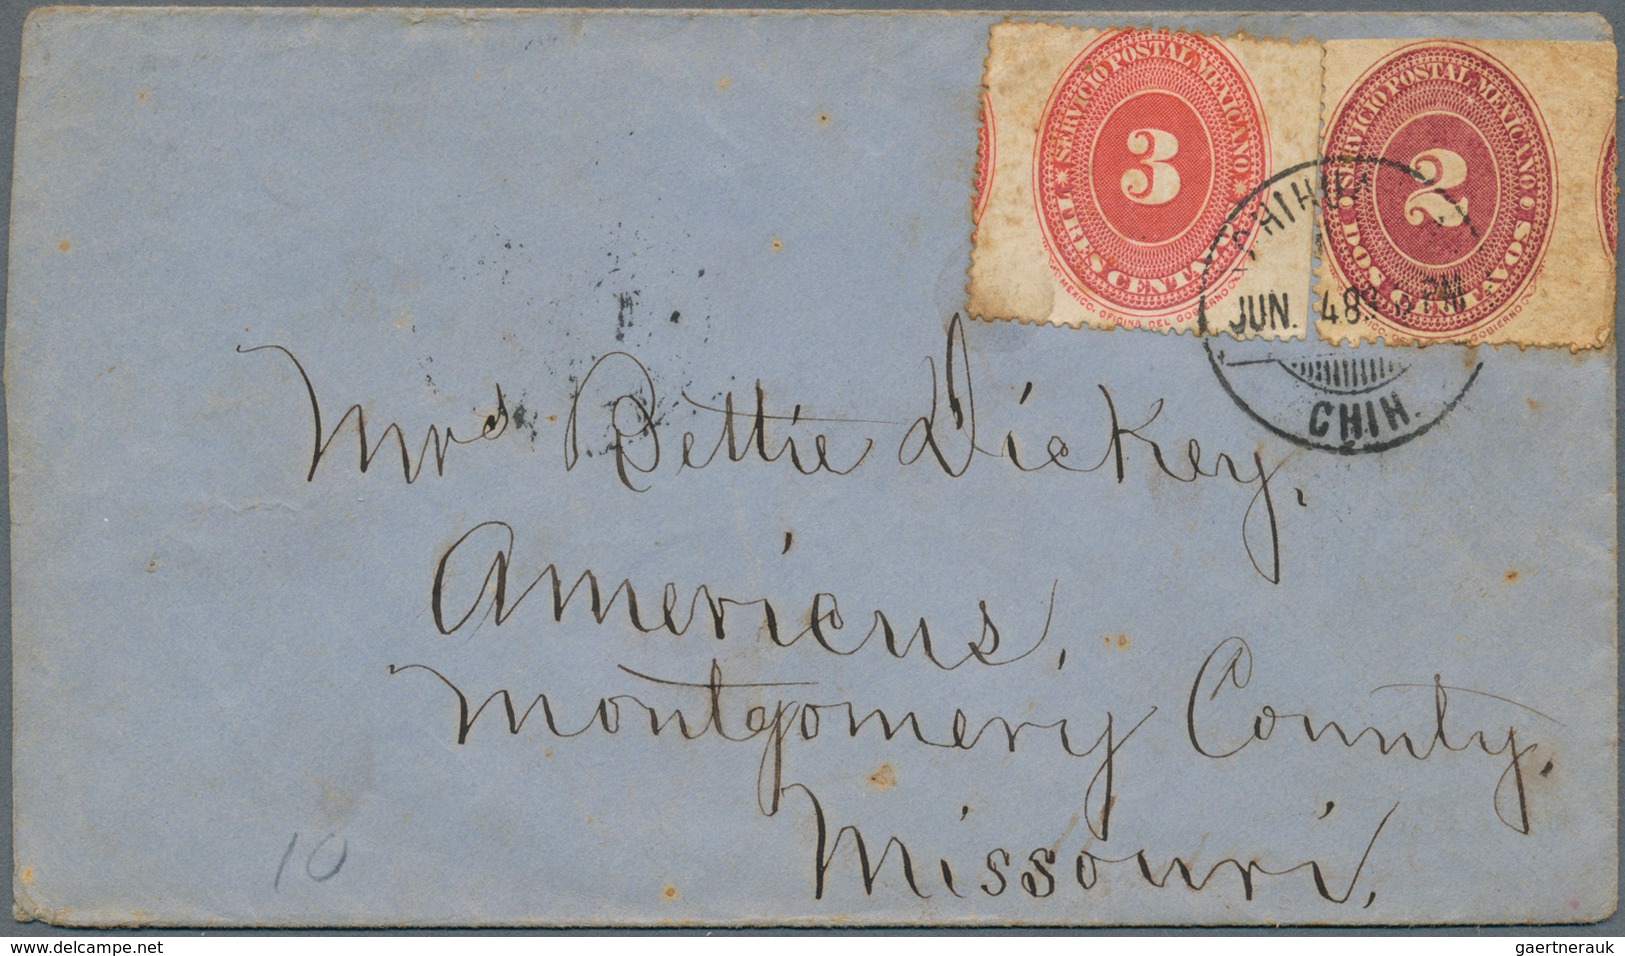 SERVICIO POSTAL MEXICANO
3
TRES CENTAVOS
MEXICO. OFICINA DEL GOBIERNO
SERVICIO POSTAL MEXICANO
2
DOS CENTAVOS
GOBIERNO
JUN. 4 PM
CHIH.
Mrs Bettie Dickey,
Americus,
Montgomery County,
Missouri,
10
www.delcampe.net
gaertnerauk